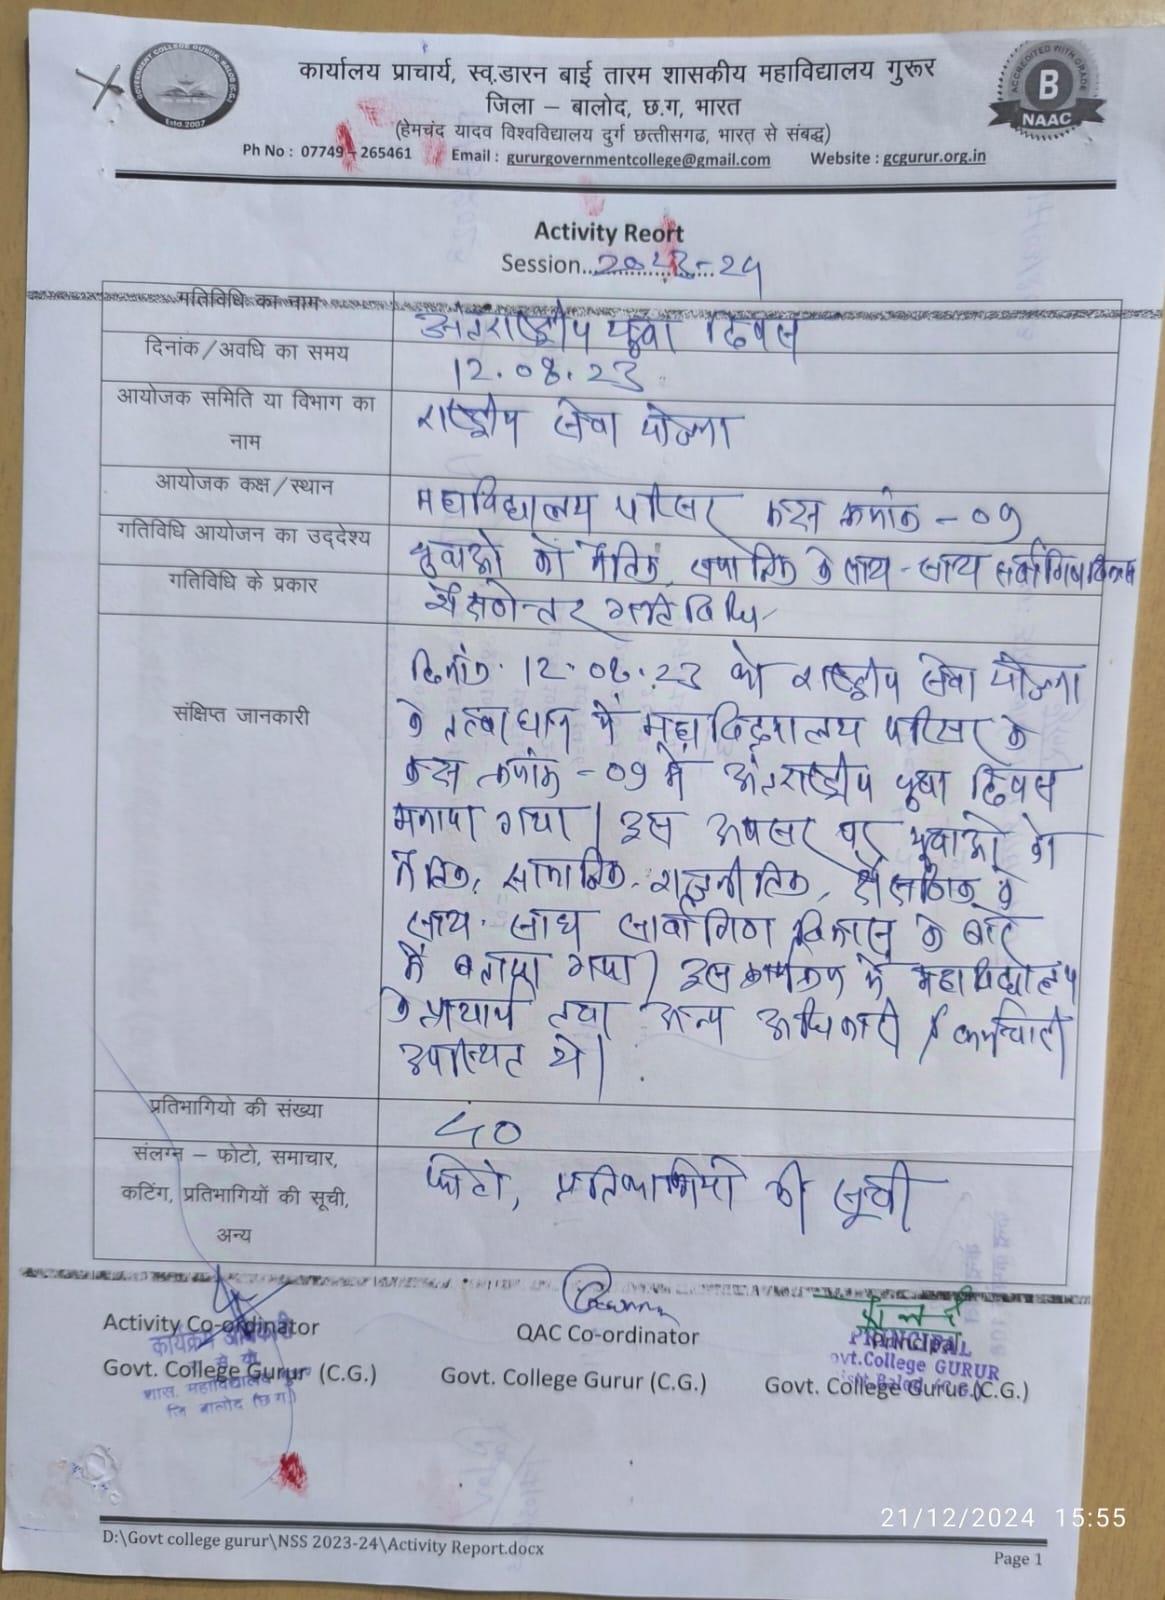 GOVERNMENT COLLEGE GURUR, BALOD (C.G.)
Estd.2007
ACCREDITED WITH GRADE
B
NAAC
कार्यालय प्राचार्य, स्व.डारन बाई तारम शासकीय महाविद्यालय गुरूर
जिला – बालोद, छ.ग, भारत
(हेमचंद यादव विश्वविद्यालय दुर्ग छत्तीसगढ, भारत से संबद्ध)
Ph No : 07749 - 265461 Email : gururgovernmentcollege@gmail.com Website : gcgurur.org.in
Activity Reort
Session..2023-24
गतिविधि का नाम
अंतराष्ट्रीय युवा दिवस
दिनांक/अवधि का समय
12.08.23
आयोजक समिति या विभाग का
नाम
राष्ट्रीय सेवा योजना
आयोजक कक्ष/स्थान
महाविद्यालय परिसर कक्ष क्रमांक - 09
गतिविधि आयोजन का उद्देश्य
युवाओ को नैतिक, समाजिक के साथ-साथ सर्वागिण विकास
गतिविधि के प्रकार
शैक्षणेत्तर गतिविधि
संक्षिप्त जानकारी
दिनांक 12.08.23 को राष्ट्रीय सेवा योजना
के तत्वाधान में महाविद्यालय परिसर के
कक्ष क्रमांक -09 में अंतराष्ट्रीय युवा दिवस
मनाया गया। इस अवसर पर युवाओ को
नैतिक, सामाजिक, राजनीतिक, शैक्षणिक के
साथ-साथ सार्वागिण विकास के बारे
में बताया गया। इस कार्यक्रम में महाविद्यालय
के प्राचार्य तथा अन्य अधिकारी / कर्मचारी
उपस्थित थे।
प्रतिभागियो की संख्या
40
संलग्न – फोटो, समाचार,
कटिंग, प्रतिभागियों की सूची,
अन्य
फोटो, प्रतिभागियो की सूची
Activity Co-ordinator
Govt. College Gurur (C.G.)
कार्यक्रम अधिकारी
शास. महाविद्यालय
जि बालोद (छ ग)
QAC Co-ordinator
Govt. College Gurur (C.G.)
Principal
Govt. College Gurur (C.G.)
PRINCIPAL
Govt.College GURUR
21/12/2024 15:55
D:\Govt college gurur\NSS 2023-24\Activity Report.docx
Page 1